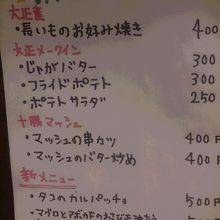 大正産
・長いものお好み焼き 400
大正メークイン
・じゃがバター 300
・フライドポテト 300
・ポテトサラダ 250
十勝マッシュ
・マッシュの串カツ 400円
・マッシュのバター炒め 400円
新メニュー
・タコのカルパッチョ 500円
・マグロとアボカドのわさび正油 500